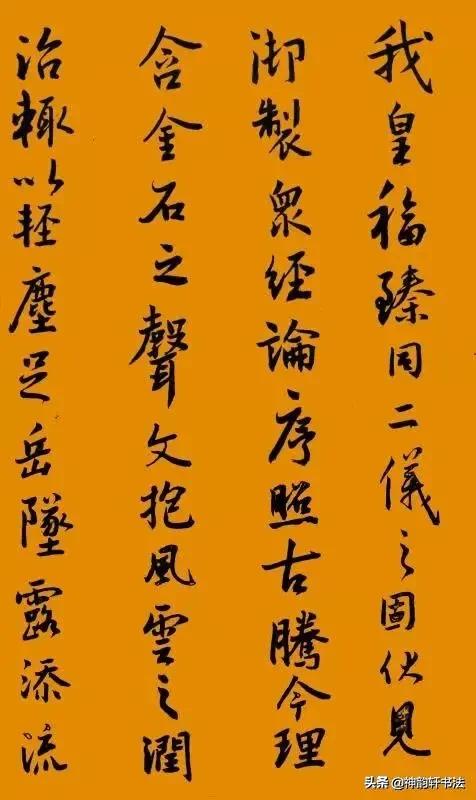 我皇福臻同二儀之固伏見
御製衆經論序照古騰今理
含金石之聲文抱風雲之潤
治輒以輕塵足岳墜露添流
头条 @神韵轩书法